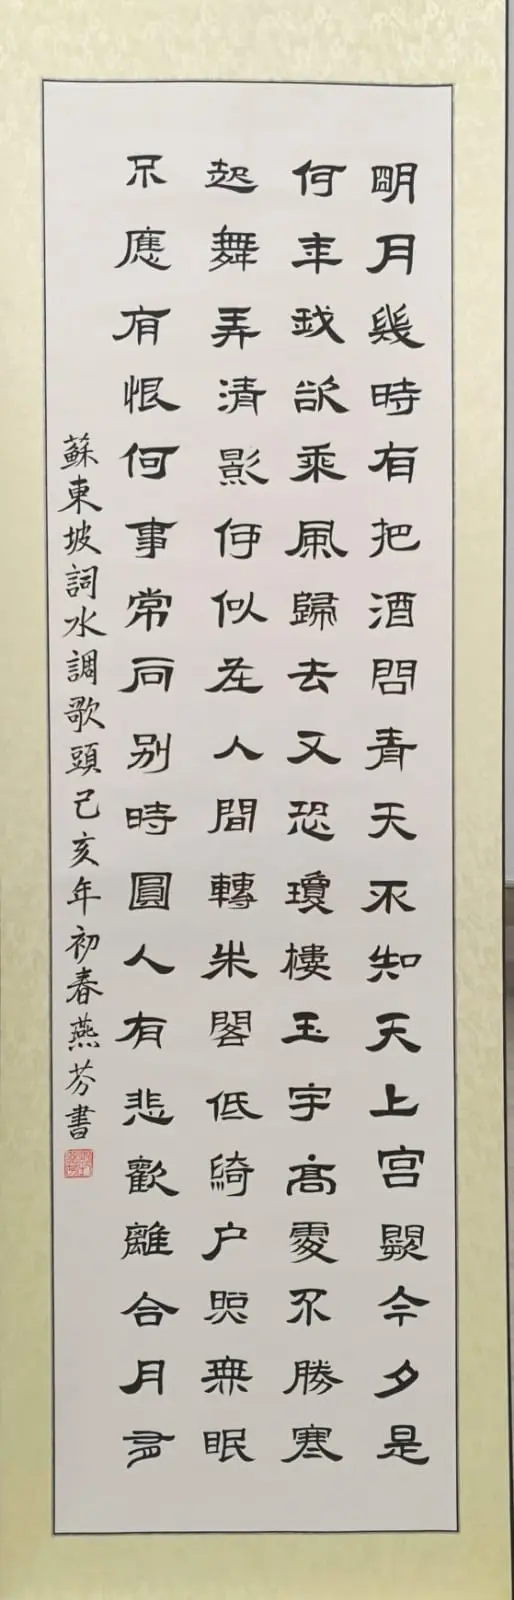 明月幾時有把酒問青天不知天上宫闕今夕是
何年我欲乘風歸去又恐瓊樓玉宇高處不勝寒
起舞弄清影何似在人間轉朱閣低綺户照無眠
不應有恨何事常向别時圓人有悲歡離合月有
蘇東坡詞水調歌頭己亥年初春燕芬書